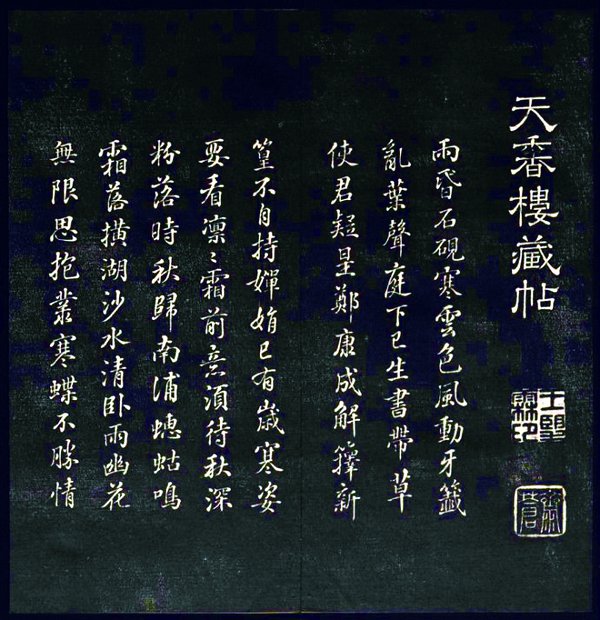 天香樓藏帖
王望霖印
雨昏石硯寒雲色風動牙籤
亂葉聲庭下已生書帶草
使君疑是鄭康成解籜新
篁不自持嬋娟已有歲寒姿
要看凜〻霜前意須待秋深
粉落時秋歸南浦蟪蛄鳴
霜落橫湖沙水清臥雨幽花
無限思抱叢寒蝶不勝情